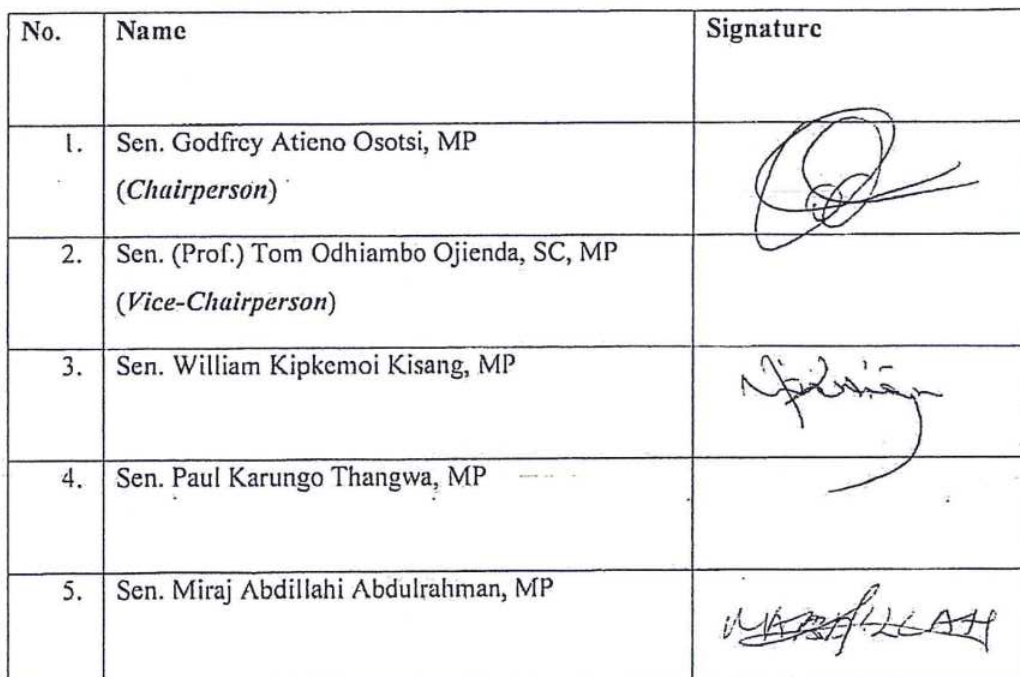 No. Name Signature
1. Sen. Godfrey Atieno Osotsi, MP
(Chairperson)
2. Sen. (Prof.) Tom Odhiambo Ojienda, SC, MP
(Vice-Chairperson)
3. Sen. William Kipkemoi Kisang, MP
4. Sen. Paul Karungo Thangwa, MP
5. Sen. Miraj Abdillahi Abdulrahman, MP